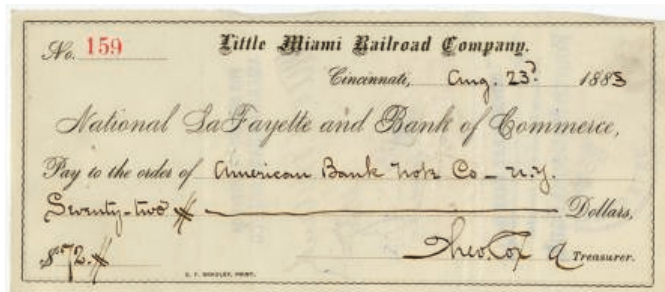 No. 159 Little Miami Railroad Company.
Cincinnati, Aug. 23d. 1883
National LaFayette and Bank of Commerce,
Pay to the order of American Bank Note Co - N.Y.
Seventy-two Dollars,
$72. Theo. Cox A Treasurer.
C. F. BRADLEY, PRINT.